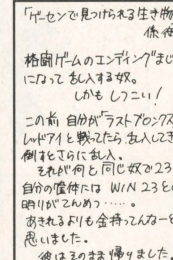 「ゲーセンで見つけられる生き物
係 夜
格闘ゲームのエンディングまじ
になって乱入する奴。
しかもしつこい!
この前 自分が「ラストブロンクス
レッドアイと戦ってたら、乱入してき
倒すとさらに乱入。
それが何と同じ奴で23
自分の筐体には WIN 23との
明りがてんめつ……。
あきれるよりも金持ってんなーと
思いました。
彼はそのまま帰りました。